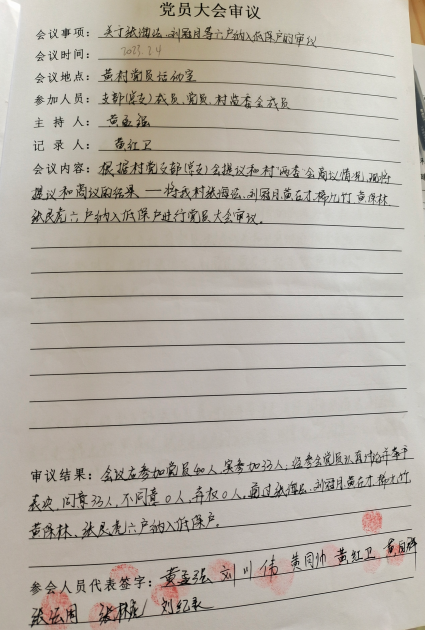 党员大会审议
会议事项：关于张海法、刘冠月等六户纳入低保户的审议
会议时间：2023.2.4
会议地点：黄村党员活动室
参加人员：支部(党支)成员、党员、村监委会成员
主持人：黄孟强
记录人：黄红卫
会议内容：根据村党支部(党支)会提议和村“两委”会商议情况，现将
提议和商议的结果——将我村张海法、刘冠月、黄在才、杨九竹、黄保林、
张民虎六户纳入低保户进行党员大会审议。
审议结果：会议应参加党员40人，实参加33人，经参会党员认真讨论并举手
表决，同意33人，不同意0人，弃权0人，通过张海法、刘冠月、黄在才、杨九竹、
黄保林、张民虎六户纳入低保户。
参会人员代表签字：黄孟强 刘川伟 黄同帅 黄红卫
刘红永